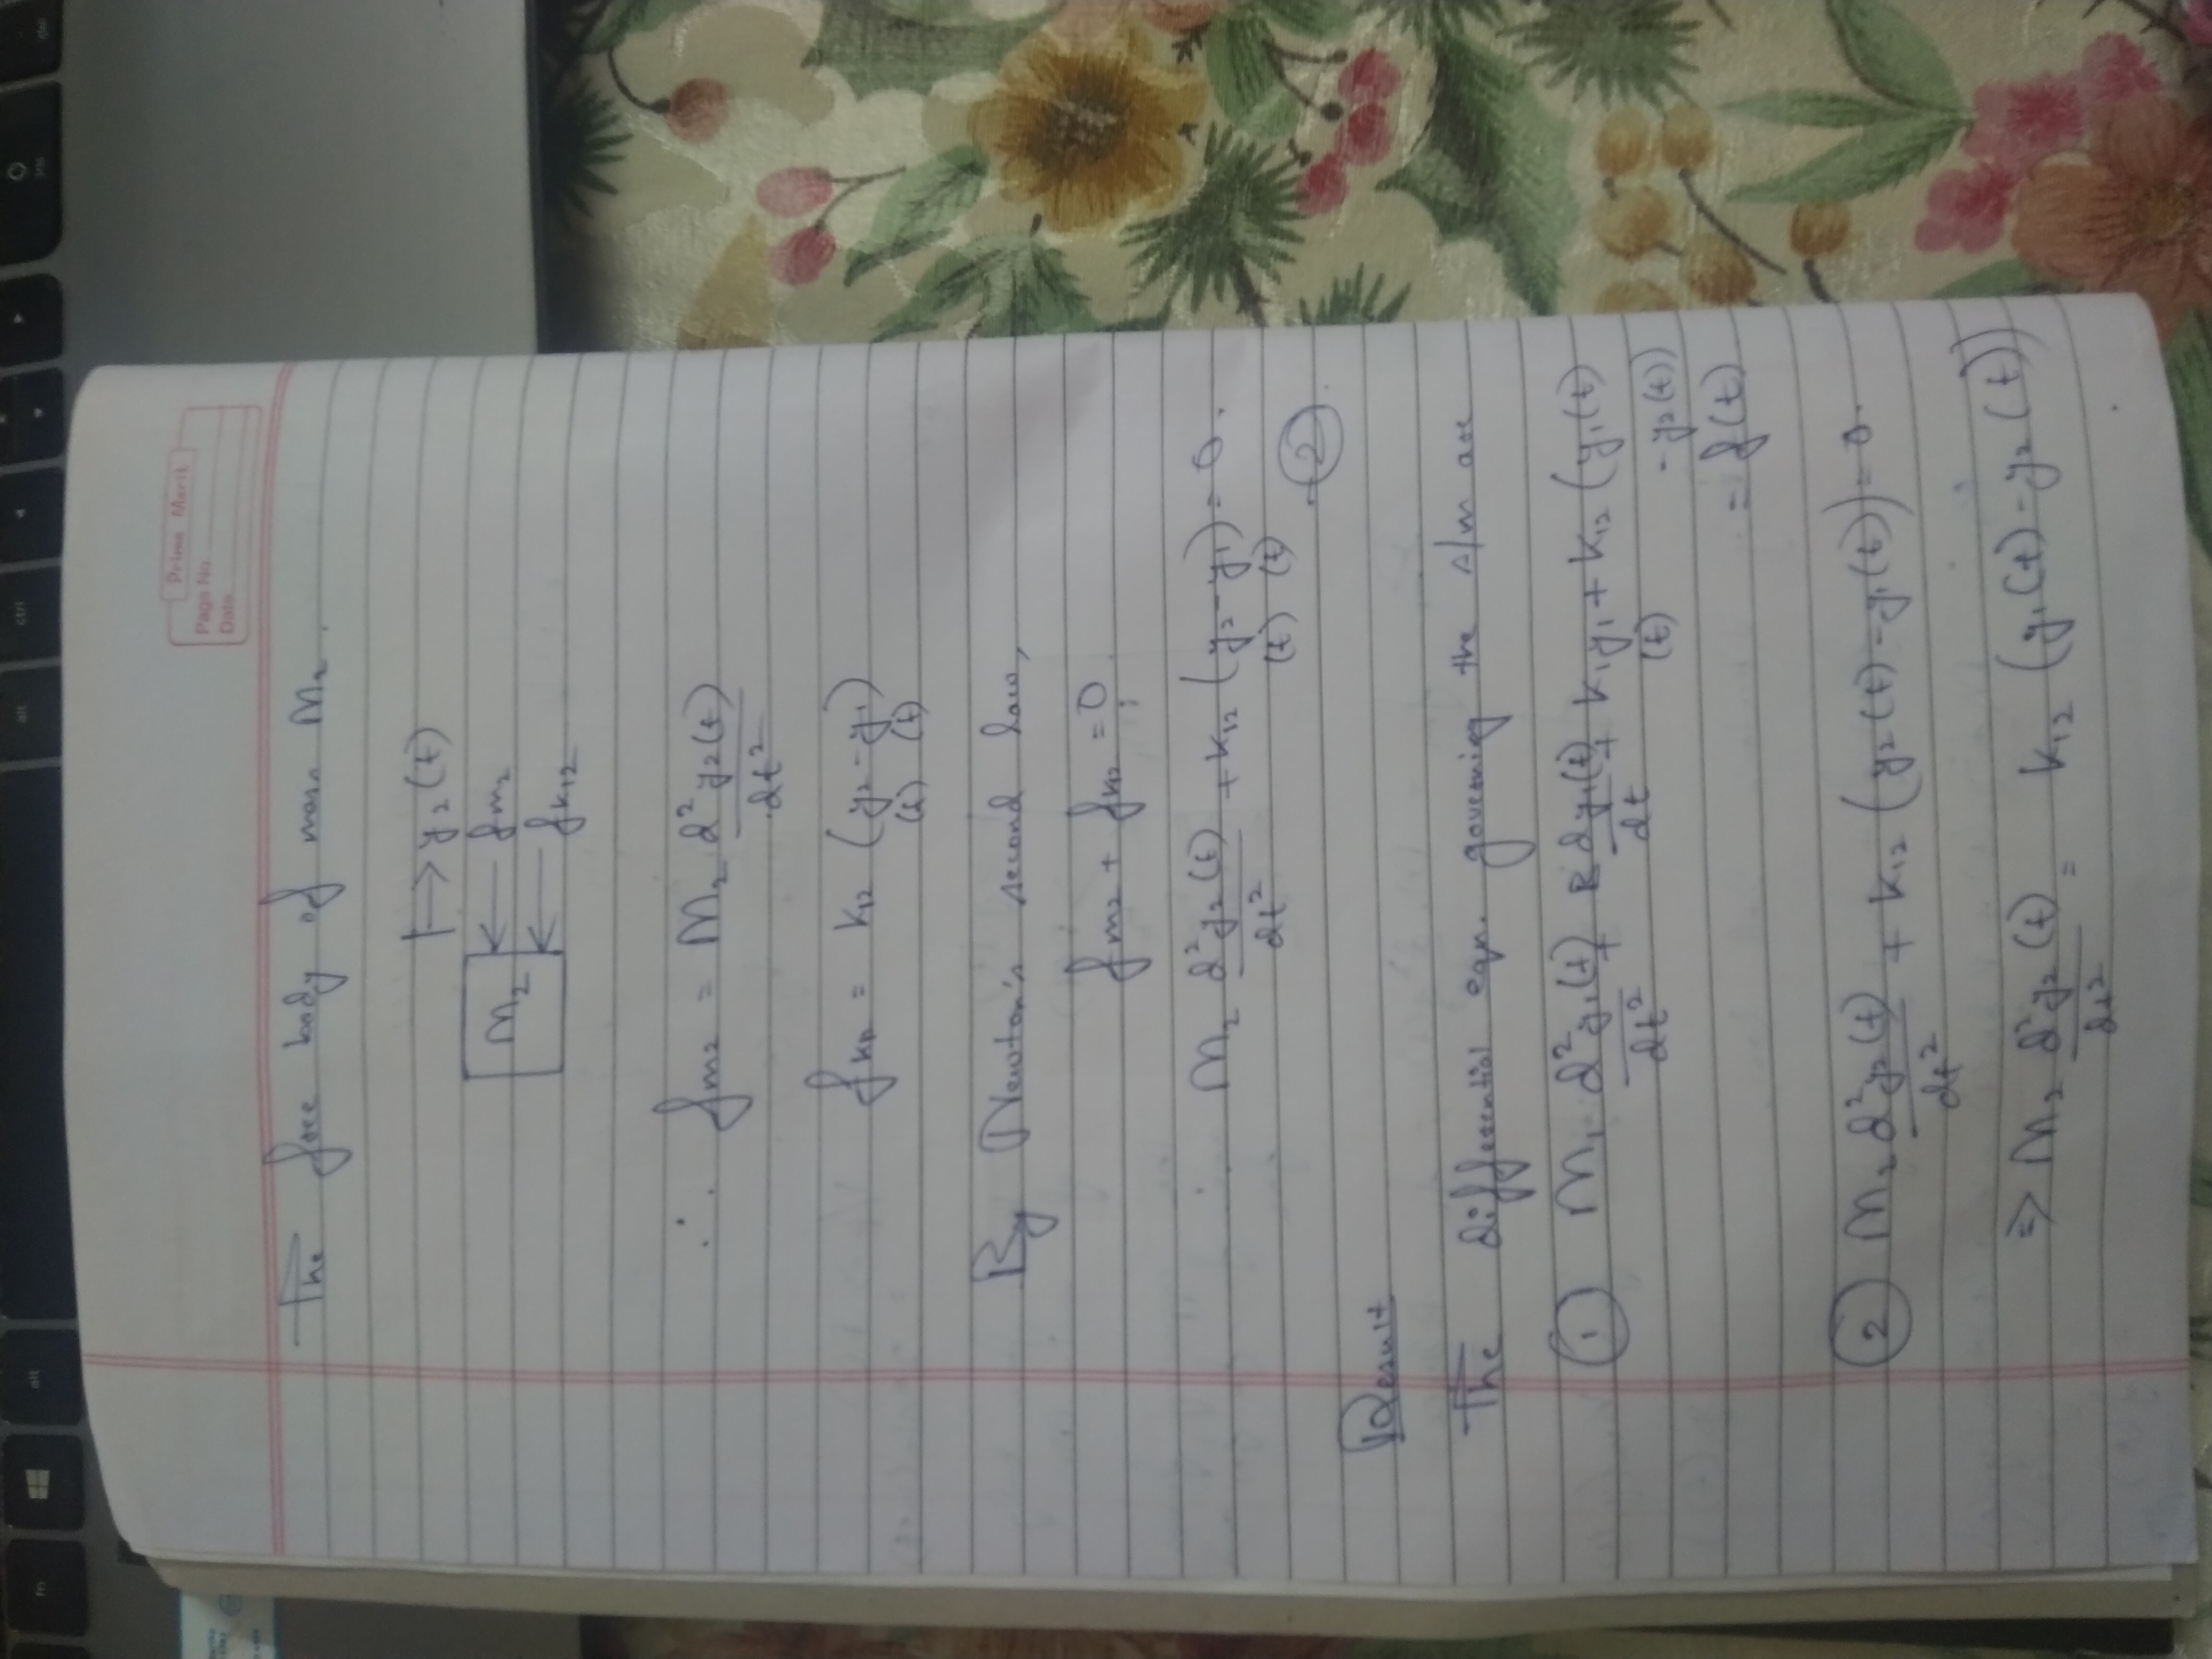 Prime Merit
Page No.
Date
The free body of mass M₂.
y₂(t)
M₂
fm₂
fk₁₂
∴ fm₂ = M₂ d²y₂(t)/dt²
fk₁₂ = k₁₂ (y₂(t) - y₁(t))
By Newton's second law,
fm₂ + fk₁₂ = 0
M₂ d²y₂(t)/dt² + k₁₂ (y₂(t) - y₁(t)) = 0.
- ②
Result
The differential eqn. governing the s/m are
① M₁ d²y₁(t)/dt² + B dy₁(t)/dt + k₁y₁(t) + k₁₂ (y₁(t)
- y₂(t))
= f(t)
② M₂ d²y₂(t)/dt² + k₁₂ (y₂(t) - y₁(t)) = 0.
⇒ M₂ d²y₂(t)/dt² = k₁₂ (y₁(t) - y₂(t))
fn
alt
alt
ctrl